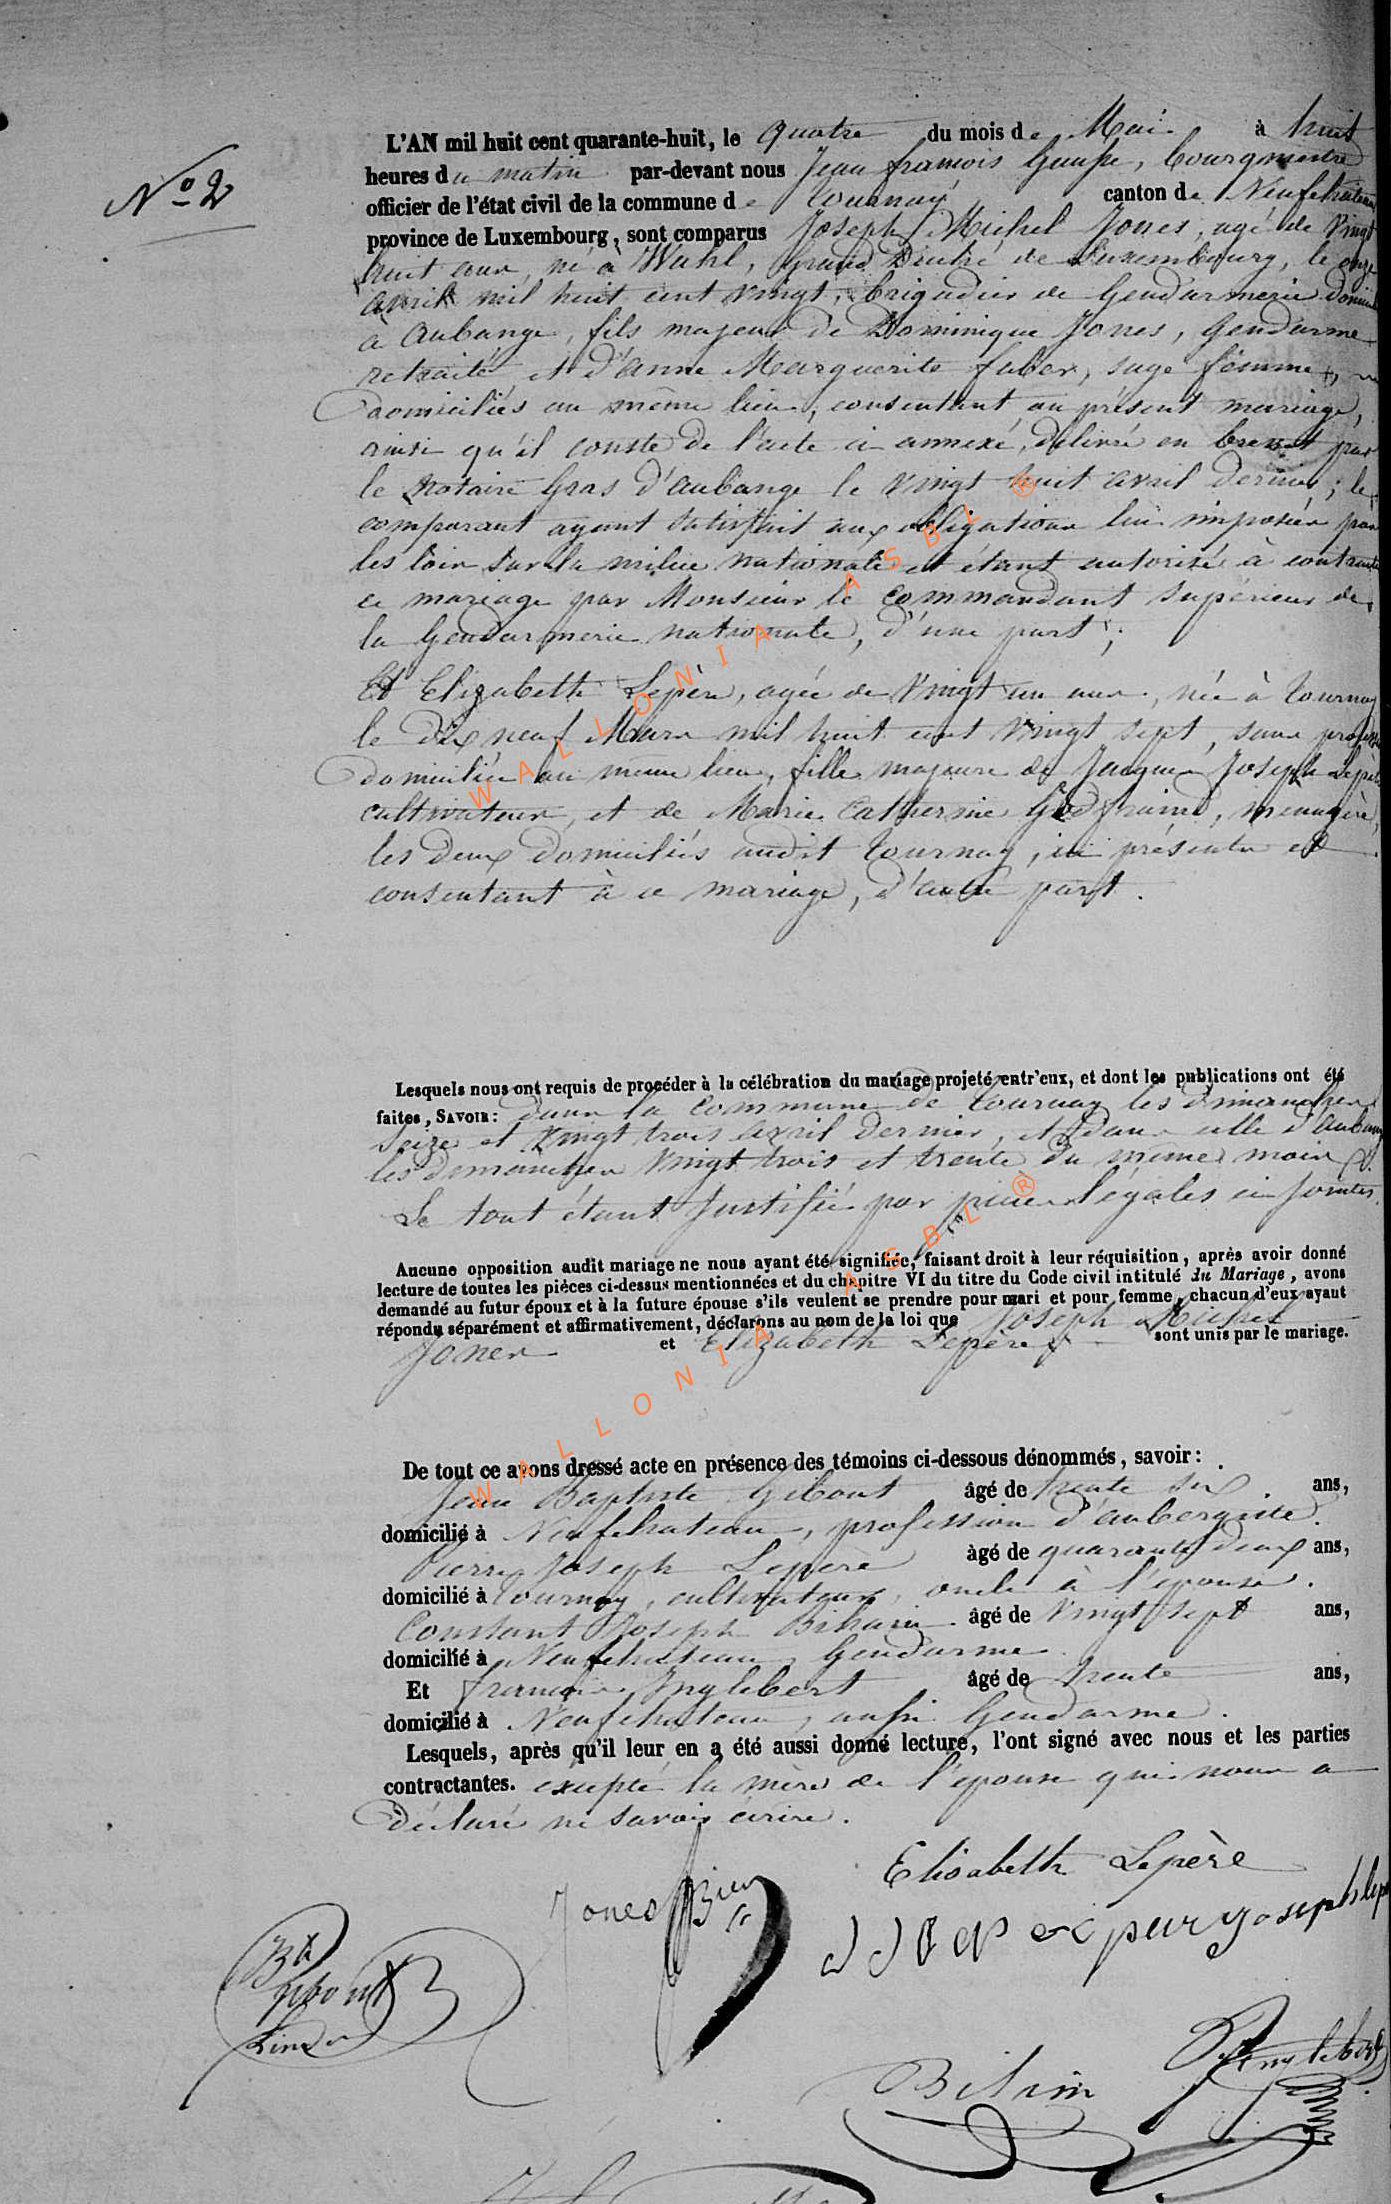 No 2
L'AN mil huit cent quarante-huit, le quatre du mois de Mai à huit
heures du matin par-devant nous Jean françois bourgmestre
officier de l'état civil de la commune de Tournay canton de Neufchateau
province de Luxembourg, sont comparus Joseph Michel Jones, agé de vingt
huit ans, né à Wahl, Grand Duché de Luxembourg, le onze
avril mil huit cent vingt, brigadier de Gendarmerie domicilié
à Aubange, fils majeur de Dominique Jones, Gendarme
retraité, et d'anne Marguerite faber, sage femme,
domiciliés au même lieu, consentant au présent mariage,
ainsi qu'il conste de l'acte ci annexé, délivré en brevet par
le Notaire Gras d'aubange le vingt huit avril dernier; le
comparant ayant satisfait aux obligations lui imposées par
les lois sur la milice nationale et étant autorisé à contracter
ce mariage par Monsieur le Commandant Supérieur de
la Gendarmerie nationale, d'une part;
Et Elizabeth Lepère, agée de vingt un ans, née à Tournay
le dix neuf Mars mil huit cent vingt sept, sans profession
domiciliée au même lieu, fille majeure de Jacques Joseph Lepère
cultivateur, et de Marie Catherine Godfraind, ménagère,
les deux domiciliés audit Tournay, ici présents et
consentant à ce mariage, d'autre part.
Lesquels nous ont requis de procéder à la célébration du mariage projeté entr'eux, et dont les publications ont été
faites, SAVOIR: dans la Commune de Tournay les dimanches
Seize et vingt trois avril dernier, et dans celle d'aubange
les dimanches vingt trois et trente du même mois.
Le tout étant Justifié par pièces légales ci Jointes.
Aucune opposition audit mariage ne nous ayant été signifiée, faisant droit à leur réquisition, après avoir donné
lecture de toutes les pièces ci-dessus mentionnées et du chapitre VI du titre du Code civil intitulé du Mariage, avons
demandé au futur époux et à la future épouse s'ils veulent se prendre pour mari et pour femme, chacun d'eux ayant
répondu séparément et affirmativement, déclarons au nom de la loi que Joseph Michel
Jones et Elizabeth Lepère sont unis par le mariage.
De tout ce avons dressé acte en présence des témoins ci-dessous dénommés, savoir:
Jean Baptiste Gibout âgé de trente six ans,
domicilié à Neufchateau, profession d'aubergiste.
Pierre Joseph Lepère âgé de quarante deux ans,
domicilié à Tournay, cultivateur, oncle à l'épouse.
Constant Joseph âgé de vingt sept ans,
domicilié à Neufchateau, Gendarme
Et françois Inglebert âgé de trente ans,
domicilié à Neufchateau, aussi Gendarme.
Lesquels, après qu'il leur en a été aussi donné lecture, l'ont signé avec nous et les parties
contractantes. excepté la mère de l'épouse qui nous a
déclaré ne savoir écrire.
Elisabeth Lepère
Jones
WALLONIA ASBL ®
WALLONIA ASBL ®